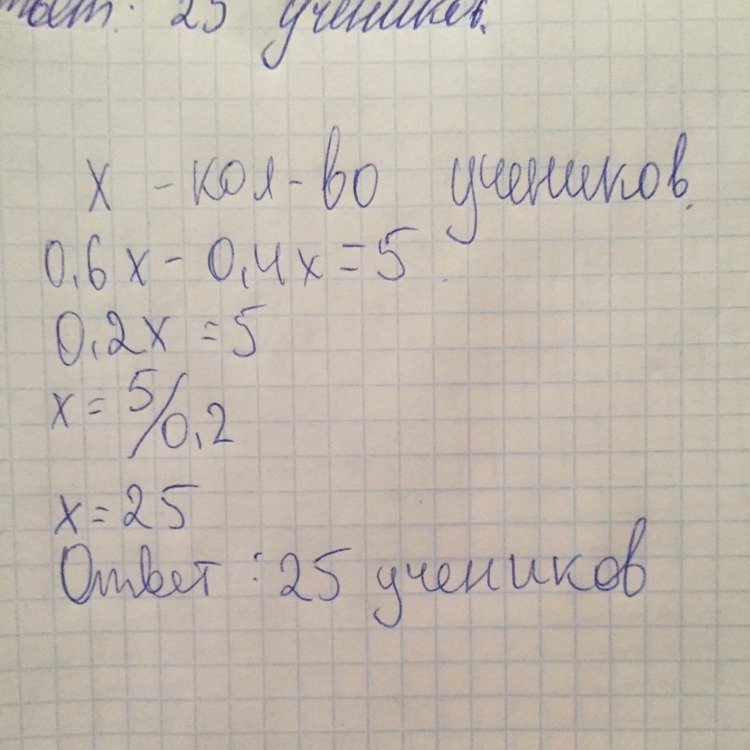 25 учеников.
x - кол-во учеников.
0,6x - 0,4x = 5
0,2x = 5
x = 5/0,2
x = 25
Ответ: 25 учеников